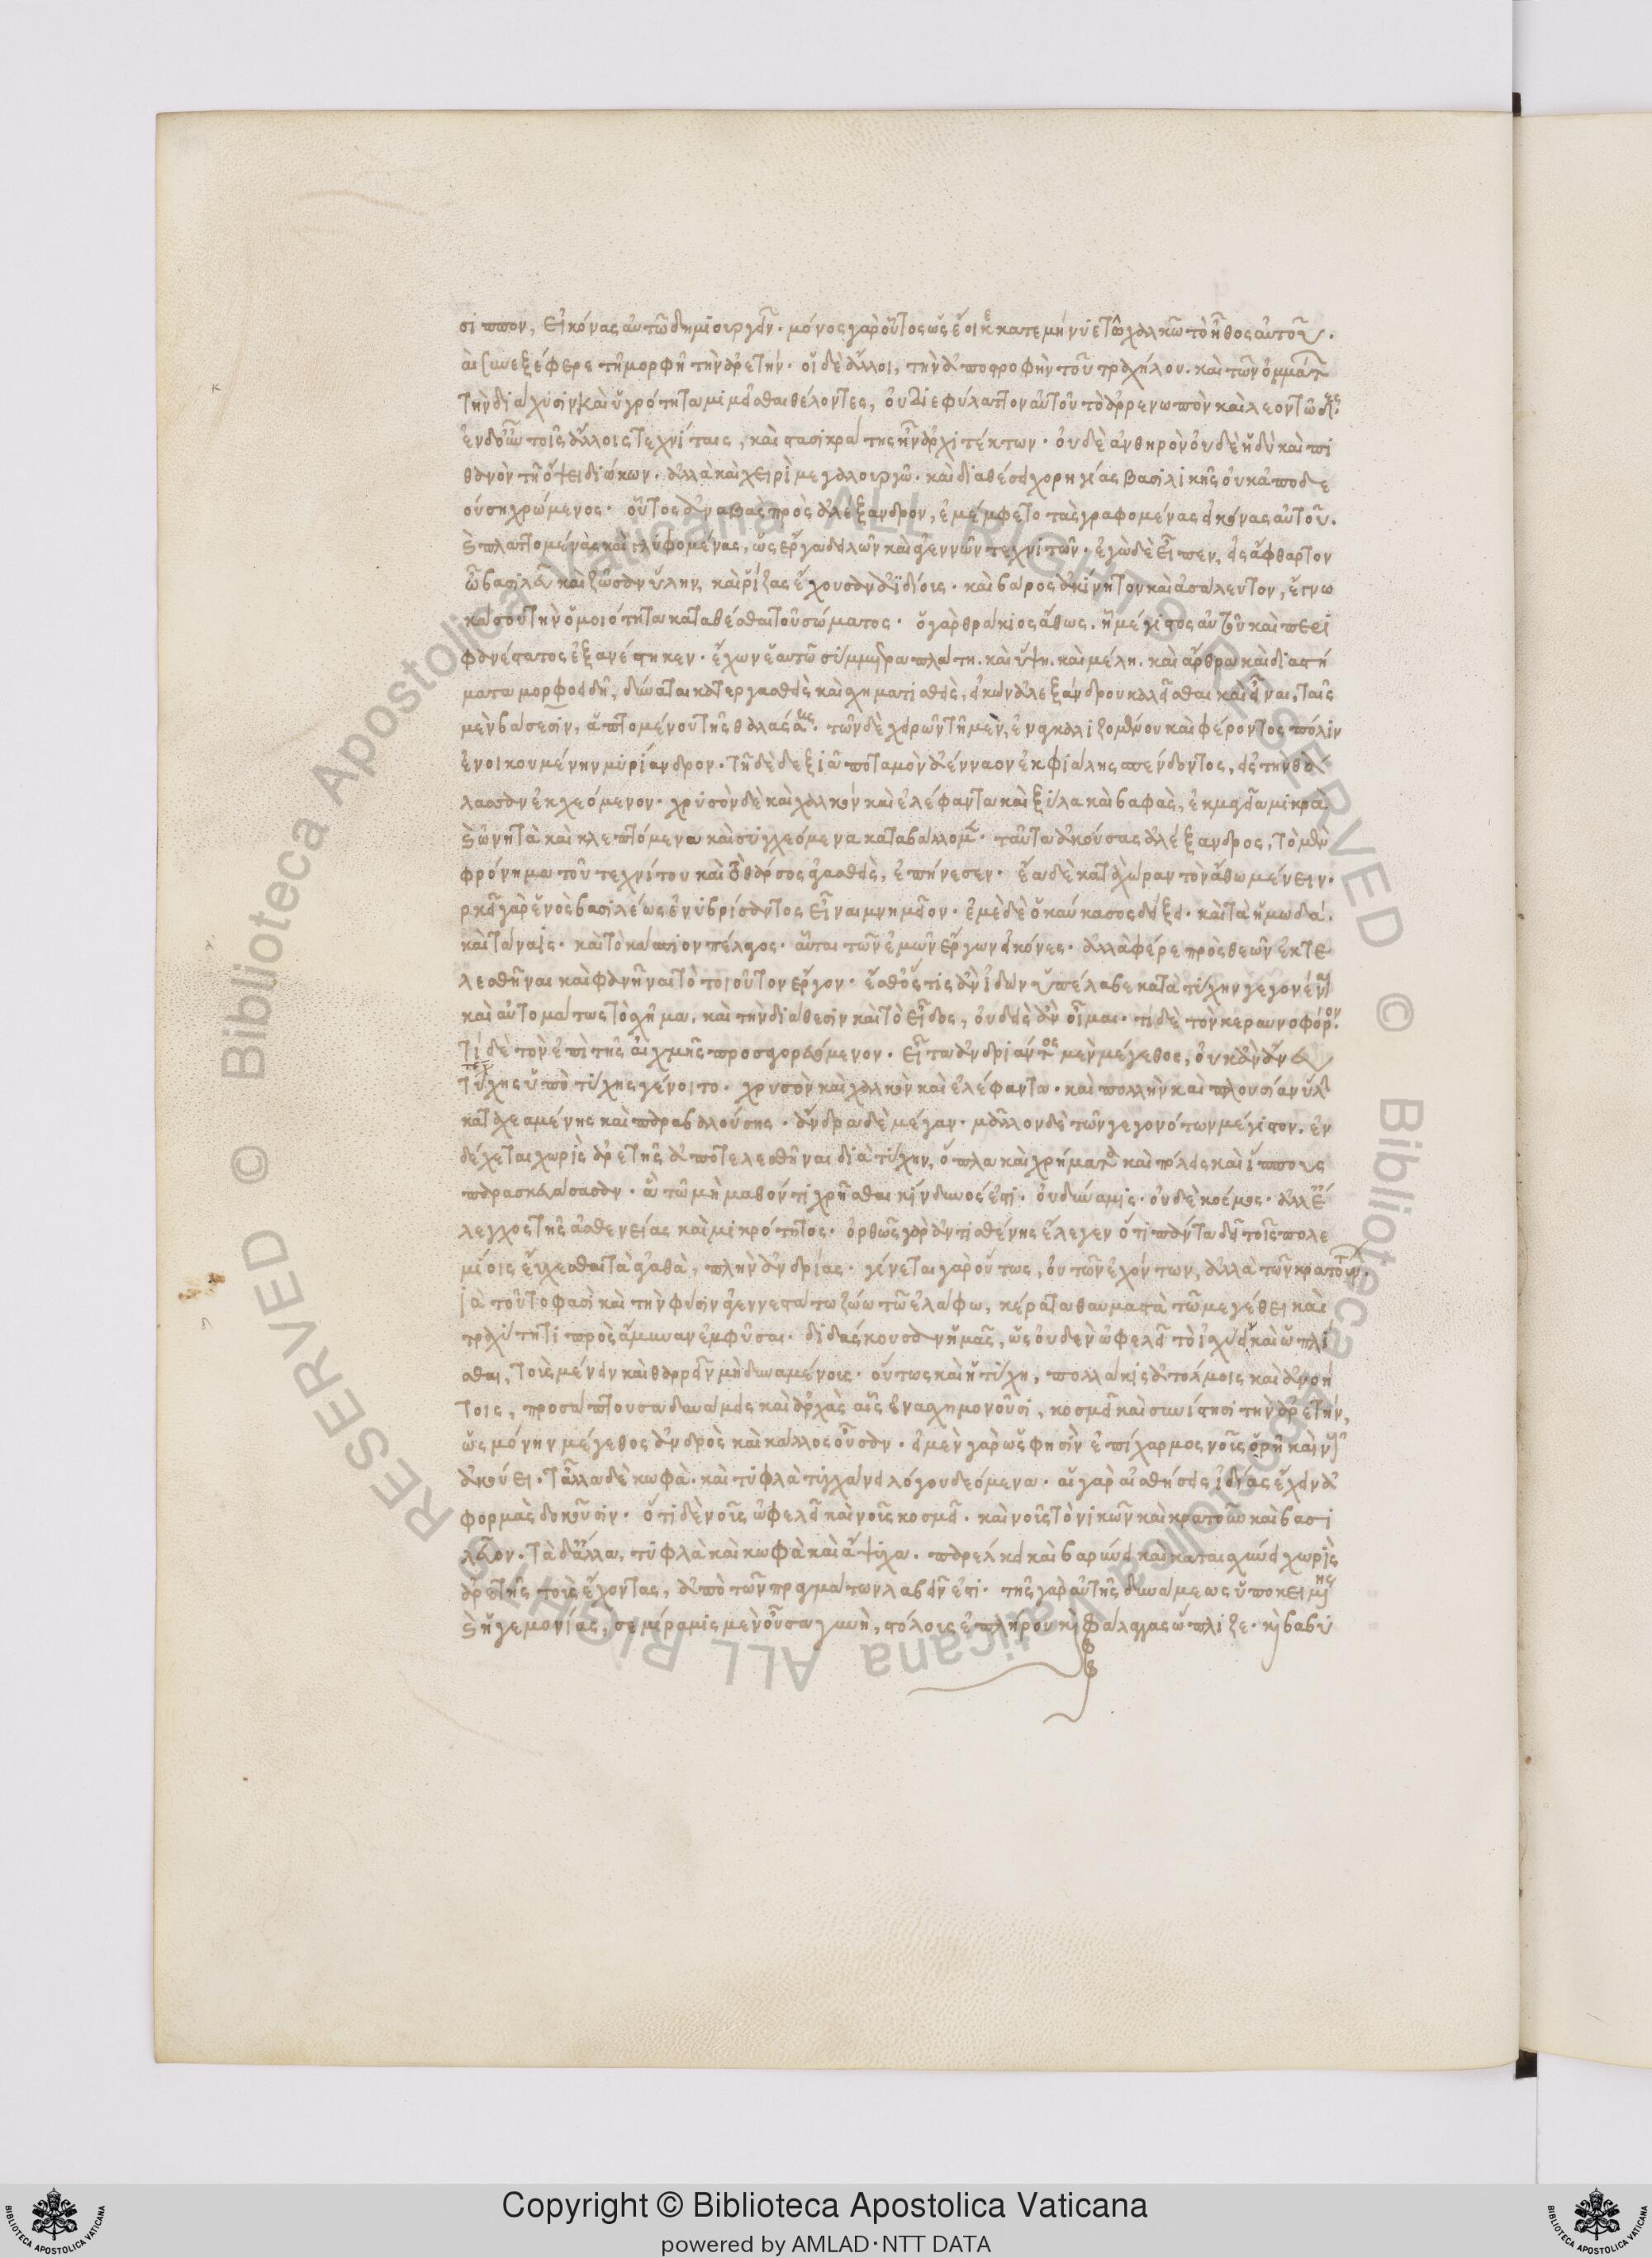 σιππον, εἰκόνας αὐτῶ δημιουργεῖν· μόνος γὰρ οὗτος ὡς ἔοικε κατεμήνυε τῶ χαλκῶ τὸ ἦθος αὐτοῦ.
καὶ συνεξέφερε τῇ μορφῇ τὴν ἀρετήν· οἱ δὲ ἄλλοι, τὴν ἀποστροφὴν τοῦ τραχήλου. καὶ τῶν ὀμμάτων
τὴν διάχυσιν καὶ ὑγρότητα μιμεῖσθαι θέλοντες, οὐ διεφύλαττον αὐτοῦ τὸ ἀρρενωπὸν καὶ λεοντῶδες.
ἐν δ' οὖν τοῖς ἄλλοις τεχνίταις, καὶ στασικράτης ἦν ἀρχιτέκτων· οὐδὲ ἀνθηρὸν οὐδὲ ἡδὺ καὶ πι
θανὸν τῇ ὄψει διώκων· ἀλλὰ καὶ χειρὶ μεγαλουργῶ. καὶ διαθέσει χορηγίας βασιλικῆς οὐκ ἀποδε
ούσῃ χρώμενος· οὗτος ἀναβὰς πρὸς ἀλέξανδρον, ἐμέμφετο τὰς γραφομένας εἰκόνας αὐτοῦ.
καὶ πλαττομένας καὶ γλυφομένας, ὡς ἔργα δειλῶν καὶ ἀγεννῶν τεχνιτῶν· ἐγὼ δὲ εἶπεν, εἰς ἄφθαρτον
ὦ βασιλεῦ καὶ ζῶσαν ὕλην, καὶ ῥίζας ἔχουσαν ἀϊδίοις· καὶ βάρος ἀκίνητον καὶ ἀσάλευτον, ἔγνω
κά σου τὴν ὁμοιότητα καταθέσθαι τοῦ σώματος· ὁ γὰρ θράκιος ἄθως. ᾗ μέγιστος αὐτοῦ καὶ περι
φανέστατος ἐξανέστηκεν· ἔχων ἑαυτῶ σύμμετρα πλάτη. καὶ ὕψη. καὶ μέλη. καὶ ἄρθρα καὶ διαστή
ματα μορφοειδῆ, δύναται κατεργασθεὶς καὶ σχηματισθεὶς, εἰκὼν ἀλεξάνδρου καλεῖσθαι καὶ εἶναι, ταῖς
μὲν βάσεσιν, ἁπτομένου τῆς θαλάσσης· τῶν δὲ χειρῶν τῇ μὲν, ἐναγκαλιζομένου καὶ φέροντος πόλιν
ἐνοικουμένην μυρίανδρον· τῇ δὲ δεξιᾶ ποταμὸν ἀένναον ἐκ φιάλης σπένδοντος, εἰς τὴν θά
λασσαν ἐκχεόμενον· χρυσὸν δὲ καὶ χαλκὸν καὶ ἐλέφαντα καὶ ξύλα καὶ βαφὰς, ἐκμαγεῖα μικρὰ
καὶ ὠνητὰ καὶ κλεπτόμενα καὶ συγχεόμενα καταβάλλομεν· ταῦτα ἀκούσας ἀλέξανδρος, τὸ μὲν
φρόνημα τοῦ τεχνίτου καὶ τὸ θάρσος ἀγασθεὶς, ἐπῄνεσεν· ἔα δὲ κατὰ χώραν τὸν ἄθω μένειν·
ἀρκεῖ γὰρ ἑνὸς βασιλέως ἐνυβρίσαντος εἶναι μνημεῖον· ἐμὲ δὲ ὁ καύκασος δείξει. καὶ τὰ ἠμωδά.
καὶ τάναϊς. καὶ τὸ κάσπιον πέλαγος· αὗται τῶν ἐμῶν ἔργων εἰκόνες· ἀλλὰ φέρε πρὸς θεῶν ἐκτε
λεσθῆναι καὶ φανῆναι τὸ τοιοῦτον ἔργον· ἔσθ' ὅστις ἂν ἰδὼν ὑπέλαβε κατὰ τύχην γεγονέναι
καὶ αὐτομάτως τὸ σχῆμα. καὶ τὴν διάθεσιν καὶ τὸ εἶδος, οὐδεὶς ἂν οἶμαι· τί δὲ τὸν κεραυνοφόρον.
τί δὲ τὸν ἐπὶ τῆς αἰχμῆς προσαγορευόμενον· εἶτα ἀνδριάντος μὲν μέγεθος, οὐκ ἂν ἄνευ
τέχνης ὑπὸ τύχης γένοιτο· χρυσὸν καὶ χαλκὸν καὶ ἐλέφαντα. καὶ πολλὴν καὶ πλουσίαν ὕλην
καταχεαμένης καὶ παραβαλούσης· ἄνδρα δὲ μέγαν· μᾶλλον δὲ τῶν γεγονότων μέγιστον. ἐν
δέχεται χωρὶς ἀρετῆς ἀποτελεσθῆναι διὰ τύχην, ὅπλα καὶ χρήματα καὶ πόλεις καὶ ἵππους
παρασκευάσασαν· ἃ τῶ μὴ μαθόντι χρῆσθαι κίνδυνός ἐστι· οὐ δύναμις· οὐδὲ κόσμος· ἀλλ' ἔ
λεγχος τῆς ἀσθενείας καὶ μικρότητος· ὀρθῶς γὰρ ἀντισθένης ἔλεγεν ὅτι πάντα δεῖ τοῖς πολε
μίοις εὔχεσθαι τἀγαθὰ, πλὴν ἀνδρίας· γίνεται γὰρ οὕτως, οὐ τῶν ἐχόντων, ἀλλὰ τῶν κρατούντων.
διὰ τοῦτο φασὶ καὶ τὴν φύσιν ἀγεννεστάτω ζώω τῶ ἐλάφω, κέρατα θαυμαστὰ τῶ μεγέθει καὶ
τραχύτητι πρὸς ἄμυναν ἐμφῦσαι· διδάσκουσαν ἡμᾶς, ὡς οὐδὲν ὠφελεῖ τὸ ἰσχύειν καὶ ὡπλί
σθαι, τοῖς μένειν καὶ θαρρεῖν μὴ δυναμένοις· οὕτως καὶ ἡ τύχη, πολλάκις ἀτόλμοις καὶ ἀνοή
τοις, προσάπτουσα δυνάμεις καὶ ἀρχὰς αἷς ἐνασχημονοῦσι, κοσμεῖ καὶ συνίστησι τὴν ἀρετήν,
ὡς μόνην μέγεθος ἀνδρὸς καὶ κάλλος οὖσαν· εἰ μὲν γὰρ ὥς φησιν ἐπίχαρμος νοῦς ὁρῇ καὶ νοῦς
ἀκούει· τἆλλα δὲ κωφὰ. καὶ τυφλὰ τυγχάνει λόγου δεόμενα· αἱ γὰρ αἰσθήσεις ἰδίας ἔχειν ἀ
φορμὰς δοκοῦσιν· ὅτι δὲ νοῦς ὠφελεῖ καὶ νοῦς κοσμεῖ. καὶ νοῦς τὸ νικῶν καὶ κρατοῦν καὶ βασι
λεῦον· τὰ δ' ἄλλα, τυφλὰ καὶ κωφὰ καὶ ἄψυχα. παρέλκει καὶ βαρύνει καὶ καταισχύνει χωρὶς
ἀρετῆς τοὺς ἔχοντας, ἀπὸ τῶν πραγμάτων λαβεῖν ἐστι· τῆς γὰρ αὐτῆς δυνάμεως ὑποκειμένης
καὶ ἡγεμονίας, σεμίραμις μὲν οὖσα γυνὴ, στόλους ἐπλήρου καὶ φάλαγγας ὥπλιζε· καὶ βαβυ
Copyright © Biblioteca Apostolica Vaticana
powered by AMLAD·NTT DATA